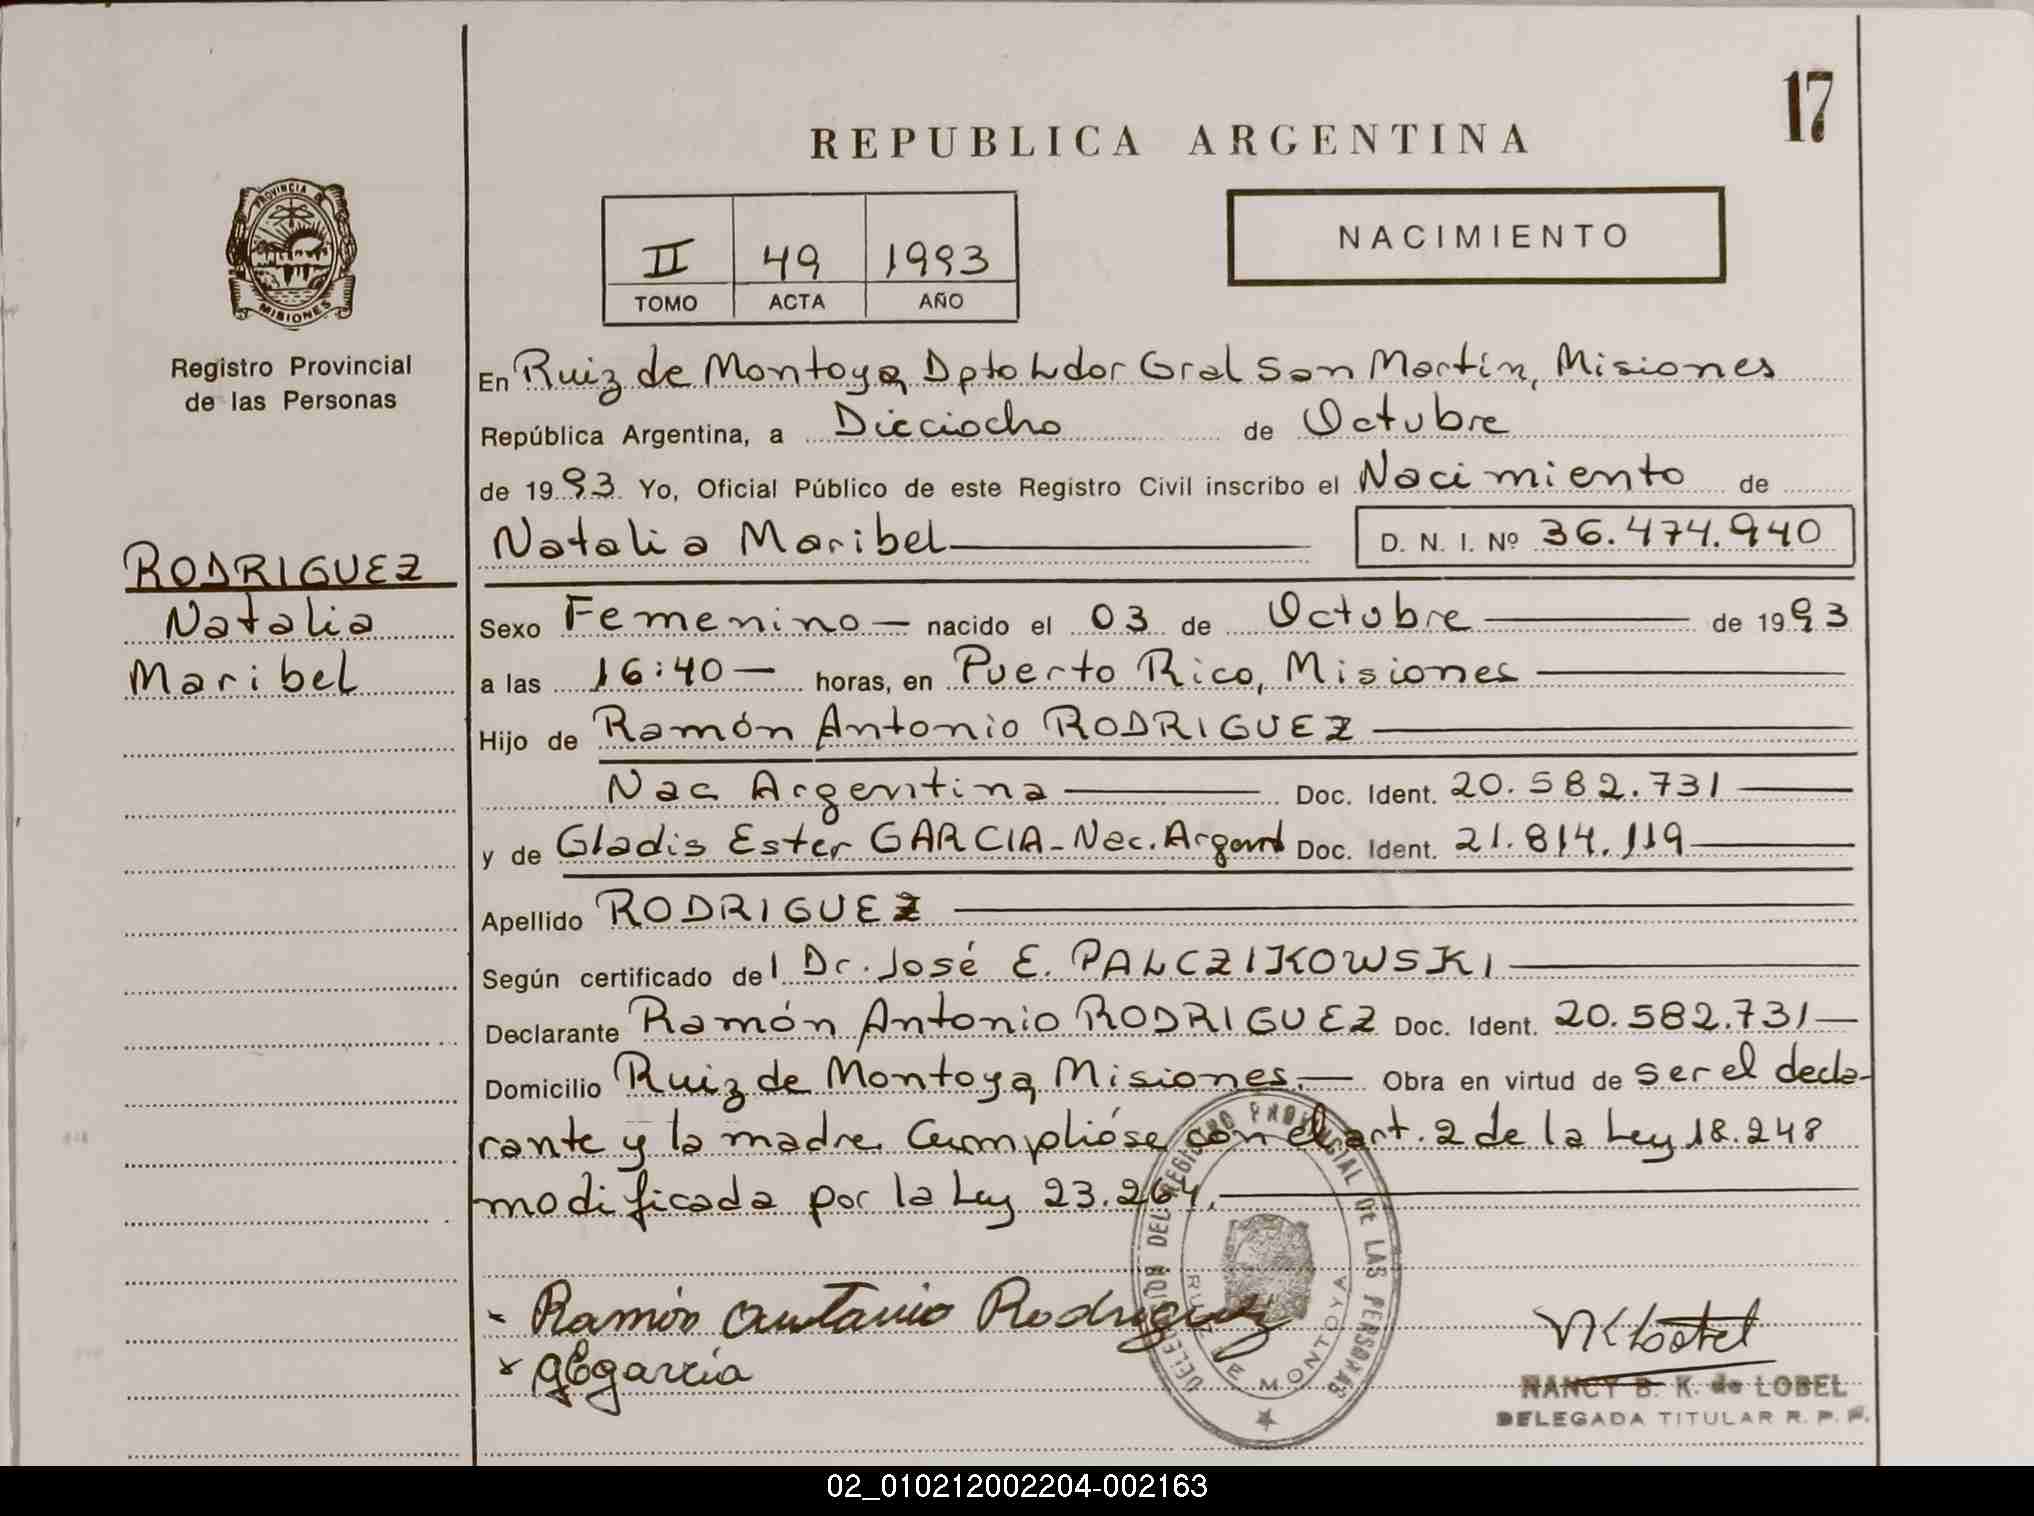 17
REPUBLICA ARGENTINA
PROVINCIA DE
MISIONES
Registro Provincial
de las Personas
II 49 1993
TOMO ACTA AÑO
NACIMIENTO
En Ruiz de Montoya, Dpto Ldor Gral San Martín, Misiones
República Argentina, a Dieciocho de Octubre
de 1993 Yo, Oficial Público de este Registro Civil inscribo el Nacimiento de
Natalia Maribel D. N. I. Nº 36.474.940
RODRIGUEZ
Natalia
Maribel
Sexo Femenino — nacido el 03 de Octubre — de 1993
a las 16:40 — horas, en Puerto Rico, Misiones —
Hijo de Ramón Antonio RODRIGUEZ —
Nac Argentina — Doc. Ident. 20.582.731 —
y de Gladis Ester GARCIA - Nac. Argent Doc. Ident. 21.814.119 —
Apellido RODRIGUEZ —
Según certificado del Dr. José E. PALCZIKOWSKI —
Declarante Ramón Antonio RODRIGUEZ Doc. Ident. 20.582.731 —
Domicilio Ruiz de Montoya, Misiones. — Obra en virtud de ser el decla-
rante y la madre. Cumplióse con el art. 2 de la Ley 18.248
modificada por la Ley 23.264. —
DELEGACION DEL REGISTRO PROVINCIAL DE LAS PERSONAS
RUIZ DE MONTOYA
- Ramón Antonio Rodriguez
x GEgarcia
NANCY B. K. de LOBEL
DELEGADA TITULAR R. P. P.
02_010212002204-002163